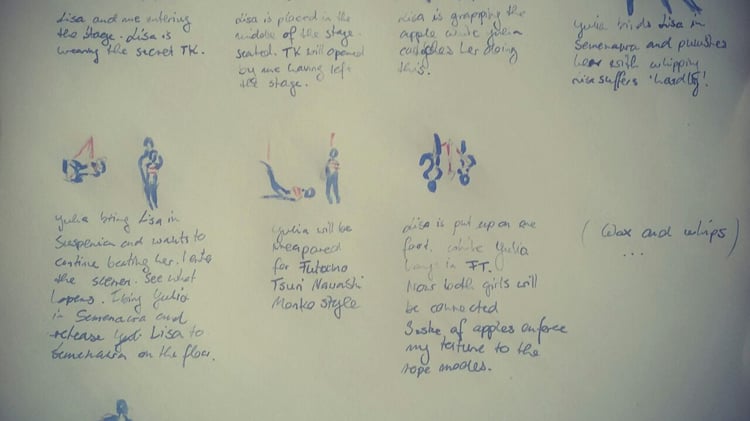 Lisa and me entering
the stage. Lisa is
wearing the secret TK.
Lisa is placed in the
middle of the stage
seated. TK will opened
by me having left
the stage.
Lisa is grapping the
apple while Yulia
catches her doing
this.
Yulia binds Lisa in
Semenawa and punishes
her with whipping
Lisa suffers 'hardly'!
Yulia bring Lisa in
Suspension and wants to
continue beating her. I enter
the scenes. See what
I bring Yulia
in Semenawa and
release Lisa to
Semenawa on the floor.
Yulia will be
preapared
for Futomo
Tsuri Nawashi
Monko Style
Lisa is put up on one
foot. while Yulia
hangs in FT.
Now both girls will
be connected
of apples enforce
my torture to the
rope models.
( Wax and whips )
...